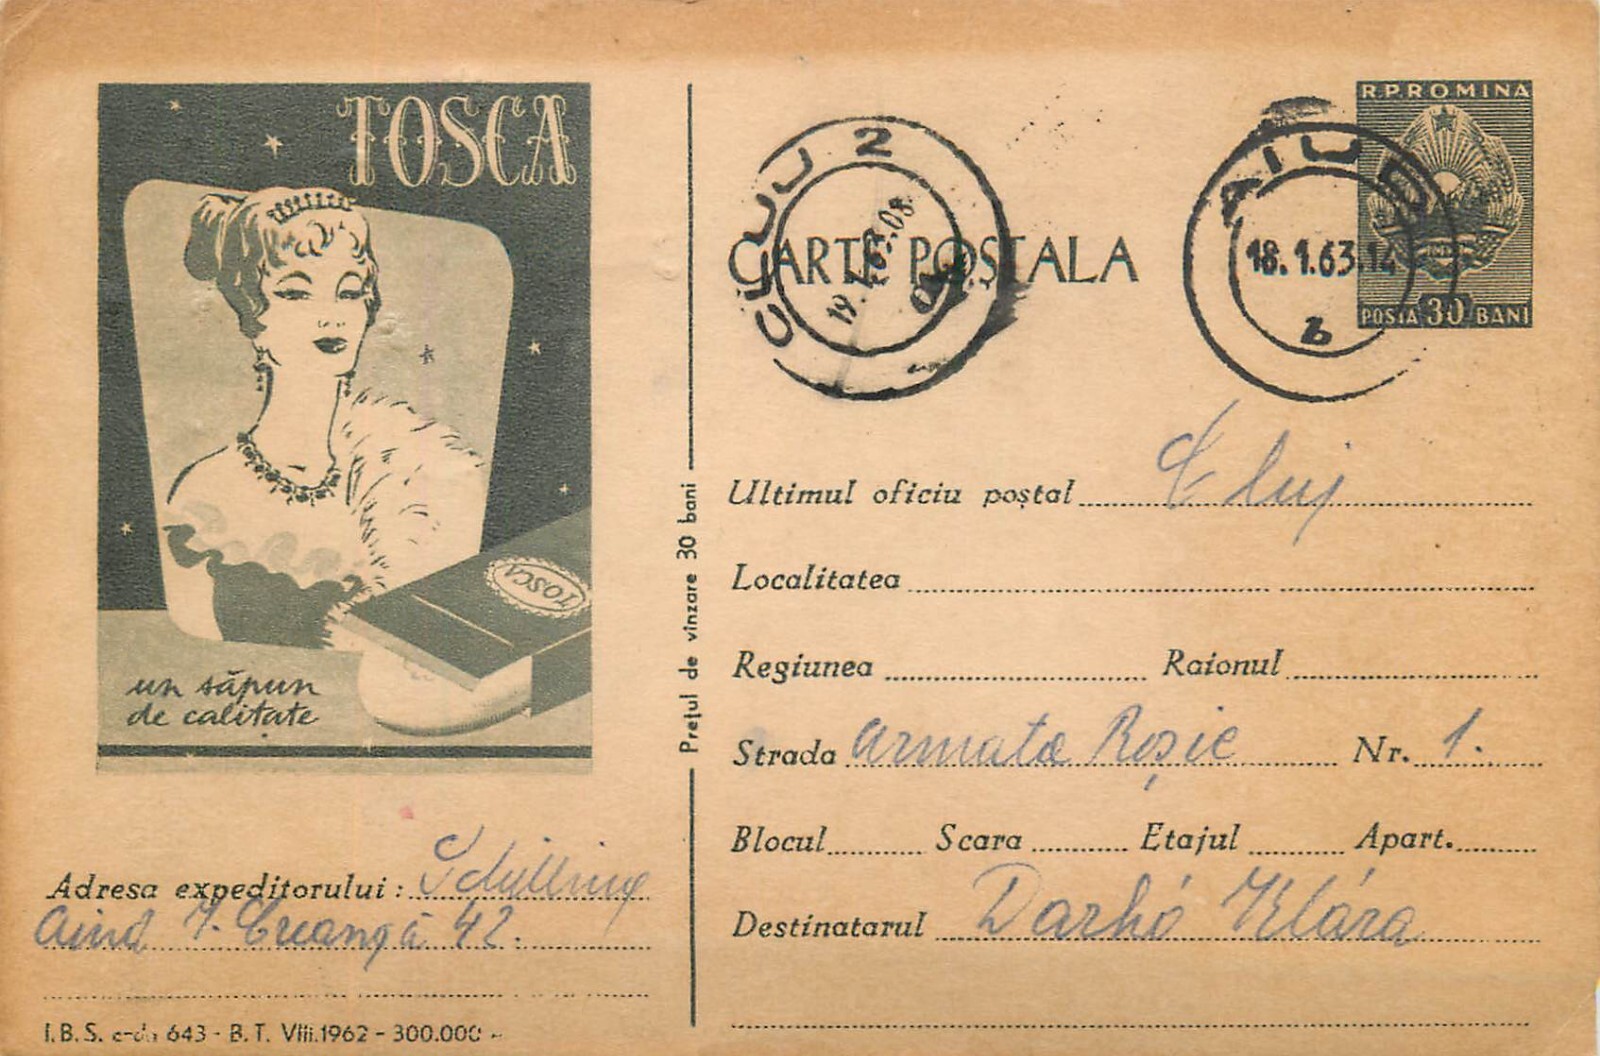 TOSCA
TOSCA
un săpun
de calitate
Adresa expeditorului: Schilling
Aiud I. Creangă 42.
I.B.S. c-da 643 - B.T. VIII.1962 - 300.000
Prețul de vînzare 30 bani
CLUJ 2
19.1.63.08
CARTE POȘTALA
AIUD
18.1.63.14
b
R.P.ROMINA
POSTA 30 BANI
Ultimul oficiu poștal Cluj
Localitatea
Regiunea Raionul
Strada Armata Roșie Nr. 1.
Blocul Scara Etajul Apart.
Destinatarul Darkó Klára